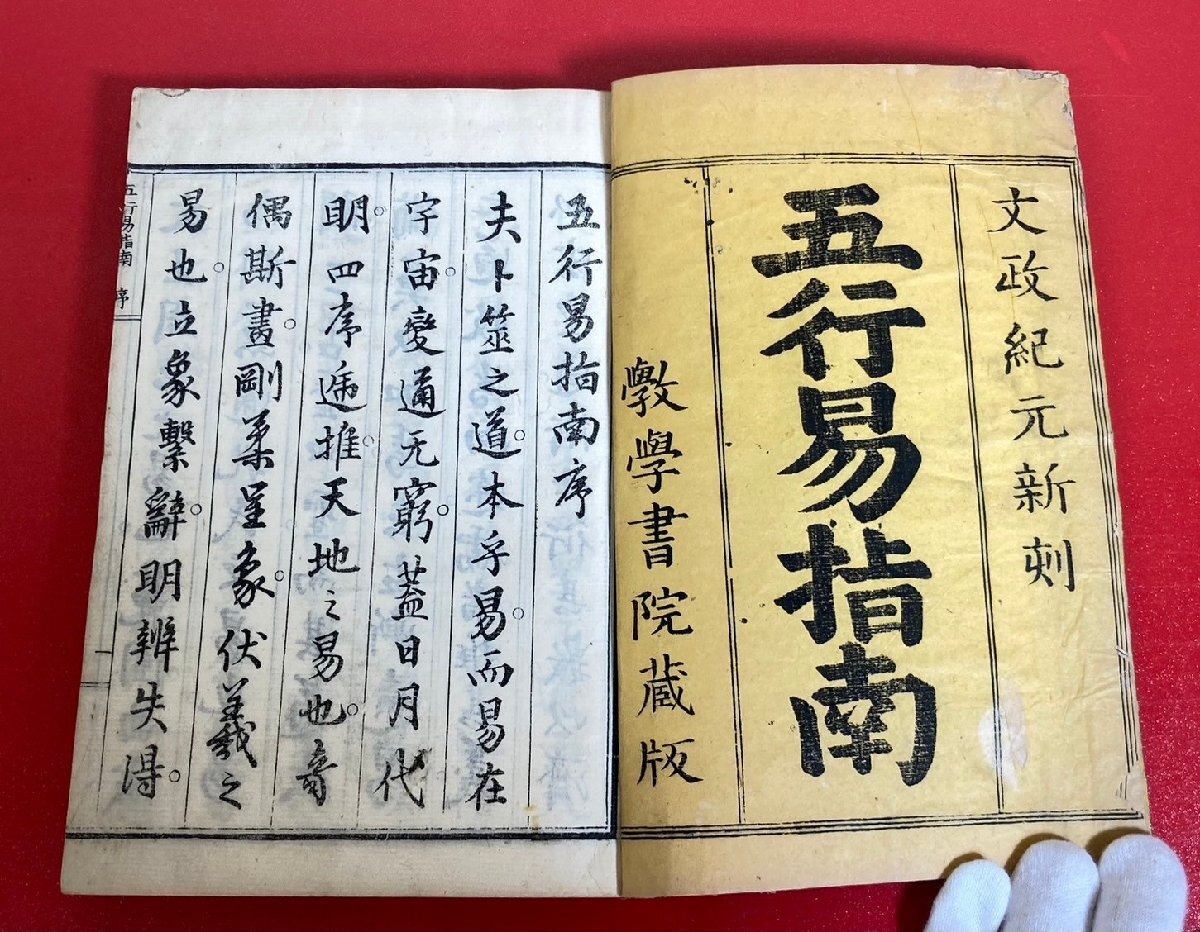 文政紀元新刻
五行易指南
斅學書院蔵版
五行易指南序
夫卜筮之道。本乎易。而易在
宇宙。變通无窮。蓋日月代
明。四序逓推。天地之易也。奇
偶斯畫。剛柔呈象。伏羲之
易也。立象繫辭。明辨失得。
五行易指南 序